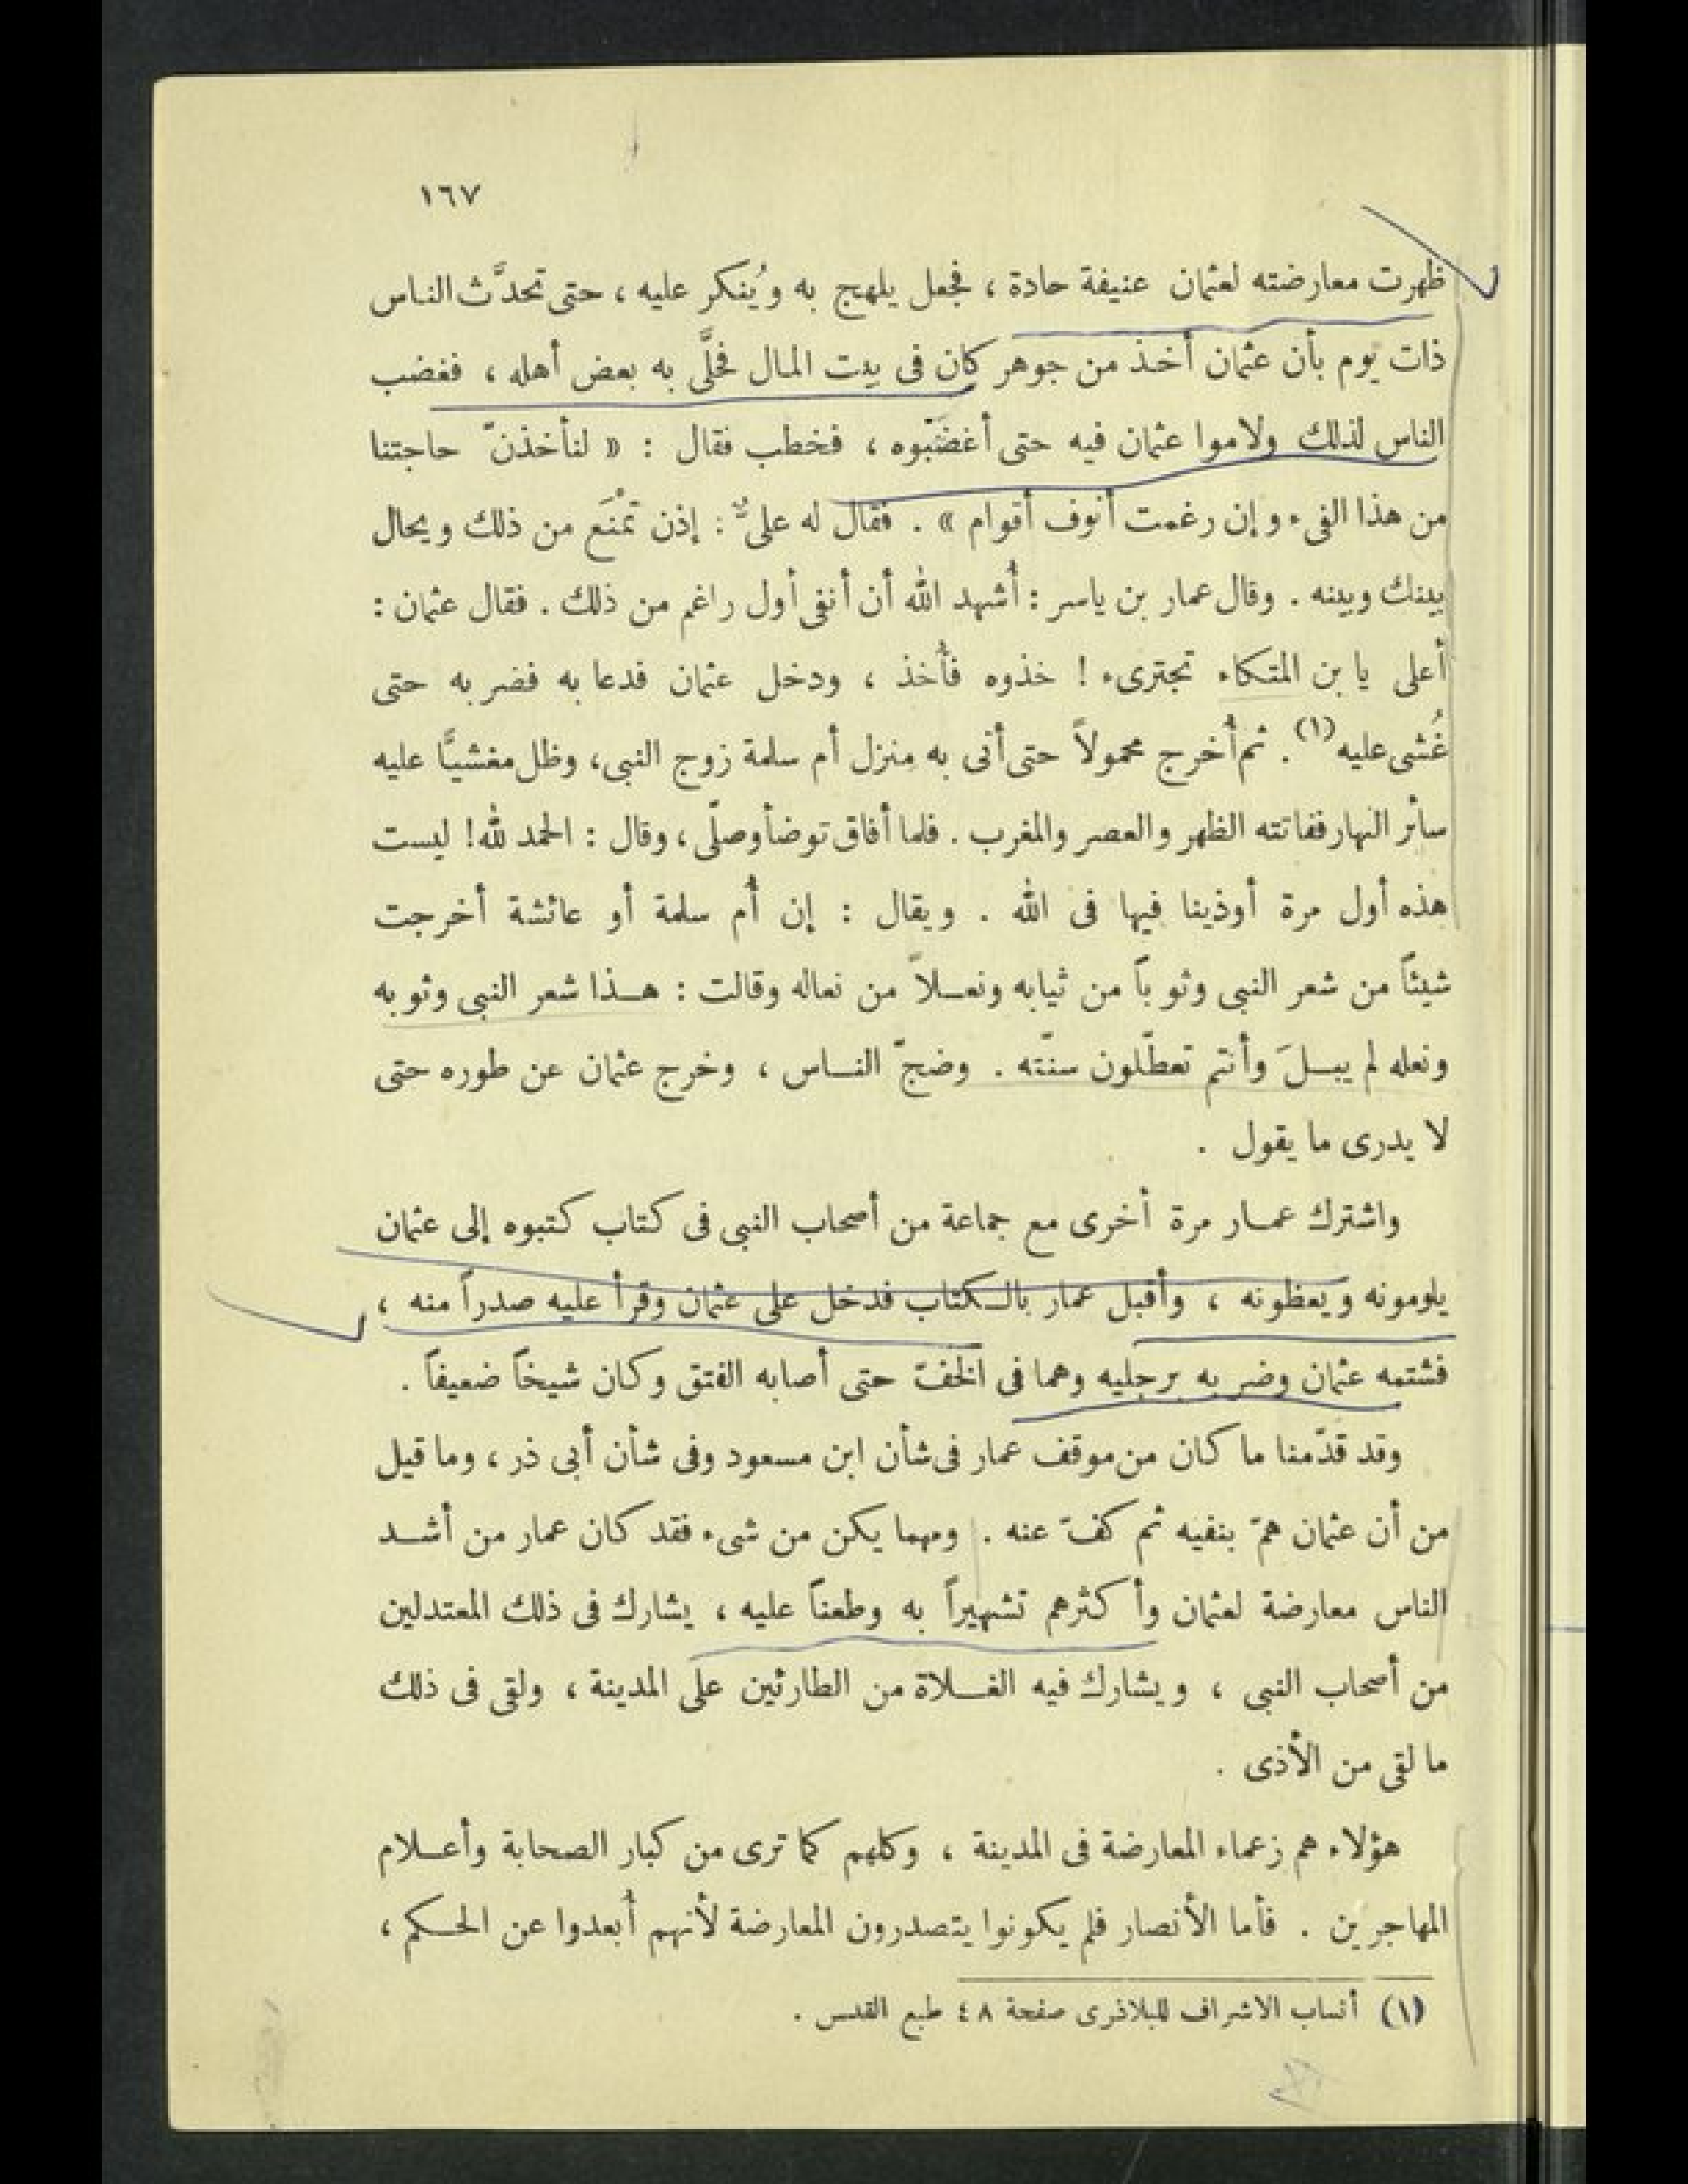 ١٦٧
ظهرت معارضته لعثمان عنيفة حادة ، فجعل يلهج به ويُنكر عليه ، حتى تحدَّث الناس
ذات يوم بأن عثمان أخذ من جوهر كان فى بيت المال فحلَّى به بعض أهله ، فغضب
الناس لذلك ولاموا عثمان فيه حتى أغضَبوه ، فخطب فقال : « لنأخذنّ حاجتنا
من هذا الفىء وإن رغمت أنوف أقوام » . فقال له علىٌّ : إذن تُمْنَع من ذلك ويحال
بينك وبينه . وقال عمار بن ياسر : أُشهد الله أن أنفى أول راغم من ذلك . فقال عثمان :
أعلى يا بن المتكاء تجترىء ! خذوه فأُخذ ، ودخل عثمان فدعا به فضربه حتى
غُشى عليه (١) . ثم أُخرج محمولاً حتى أتى به منزل أم سلمة زوج النبى، وظل مغشيًّا عليه
سائر النهار ففاتته الظهر والعصر والمغرب . فلما أفاق توضأ وصلّى ، وقال : الحمد لله ! ليست
هذه أول مرة أوذينا فيها فى الله . ويقال : إن أُم سلمة أو عائشة أخرجت
شيئاً من شعر النبى وثوباً من ثيابه ونعلاً من نعاله وقالت : هذا شعر النبى وثوبه
ونعله لم يبلَ وأنتم تعطّلون سنّته . وضجّ الناس ، وخرج عثمان عن طوره حتى
لا يدرى ما يقول .
واشترك عمار مرة أخرى مع جماعة من أصحاب النبى فى كتاب كتبوه إلى عثمان
يلومونه ويعظونه ، وأقبل عمار بالكتاب فدخل على عثمان وقرأ عليه صدراً منه ،
فشتمه عثمان وضربه برجليه وهما فى الخفّ حتى أصابه الفتق وكان شيخاً ضعيفاً .
وقد قدّمنا ما كان من موقف عمار فى شأن ابن مسعود وفى شأن أبى ذر ، وما قيل
من أن عثمان همّ بنفيه ثم كفّ عنه . ومهما يكن من شىء فقد كان عمار من أشد
الناس معارضة لعثمان وأكثرهم تشهيراً به وطعناً عليه ، يشارك فى ذلك المعتدلين
من أصحاب النبى ، ويشارك فيه الغلاة من الطارئين على المدينة ، ولقى فى ذلك
ما لقى من الأذى .
هؤلاء هم زعماء المعارضة فى المدينة ، وكلهم كما ترى من كبار الصحابة وأعلام
المهاجرين . فأما الأنصار فلم يكونوا يتصدرون المعارضة لأنهم أُبعدوا عن الحكم ،
(١) أنساب الاشراف للبلاذرى صفحة ٤٨ طبع القدس .